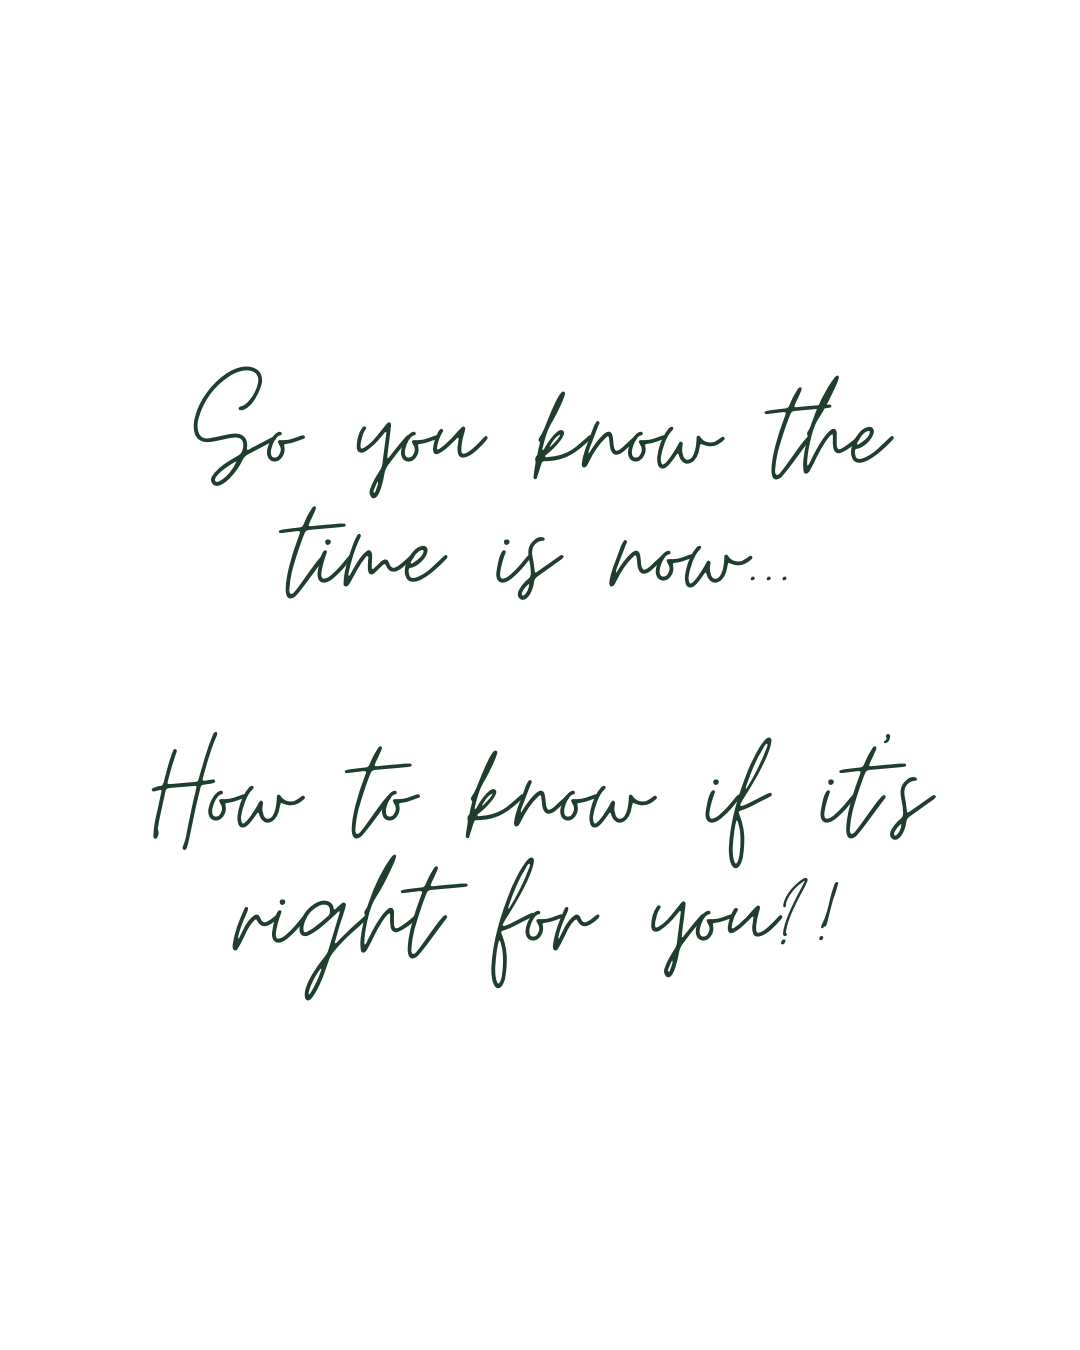 So you know the
time is now...
How to know if it's
right for you?!